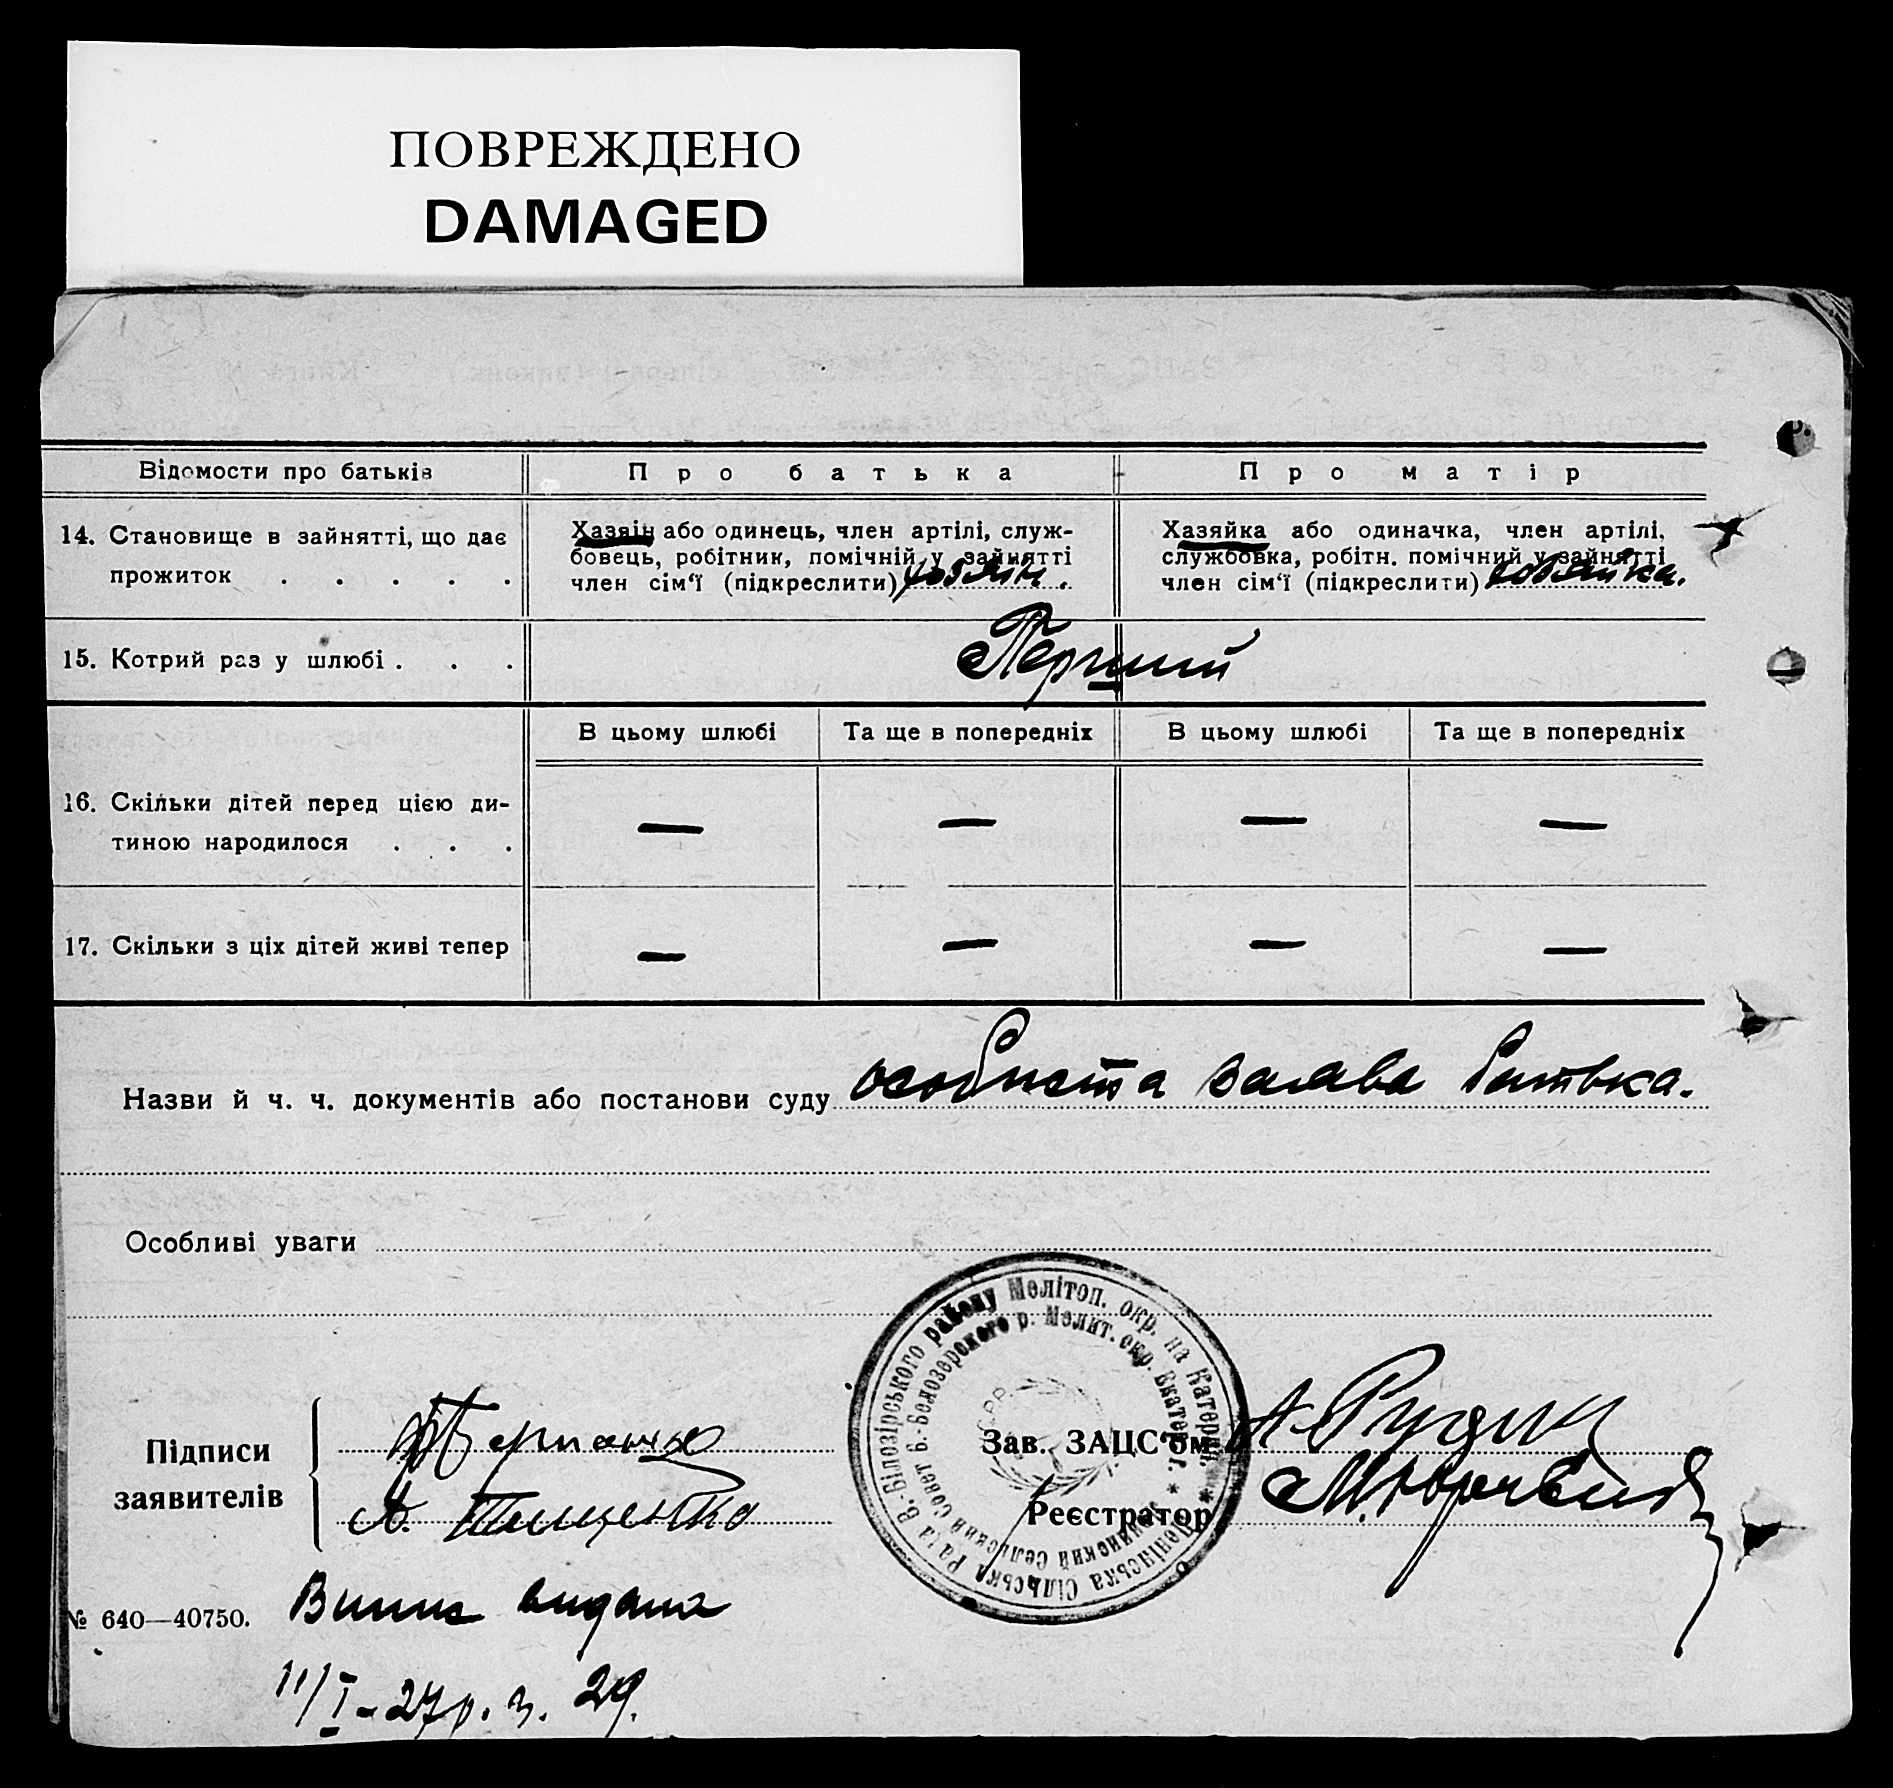 ПОВРЕЖДЕНО
DAMAGED
Відомости про батьків
Про батька
Про матір
14. Становище в зайнятті, що дає
прожиток . . . . .
Хазяїн або одинець, член артілі, служ-
бовець, робітник, помічній у зайнятті
член сім'ї (підкреслити) хозяїн.
Хазяйка або одиначка, член артілі,
службовка, робітн. помічний у зайнятті
член сім'ї (підкреслити) хозяйка.
15. Котрий раз у шлюбі . . .
Перший
В цьому шлюбі
Та ще в попередніх
В цьому шлюбі
Та ще в попередніх
16. Скільки дітей перед цією ди-
тиною народилося . . .
— — — —
17. Скільки з ціх дітей живі тепер
— — — —
Назви й ч. ч. документів або постанови суду особиста заява батька.
Особливі уваги
В.-Білозірського району Мелітоп. окр. на Катерин.
Сільська Рада
Б.-Белозерского р. Мелит. окр. Екатер. г.
Сельский Совет
Підписи
заявителів
А. Тищенко
Зав. ЗАЦС'ом А. Рудик
Реєстратор
№ 640—40750.
Випис видана
11/I-27р. з. 29.